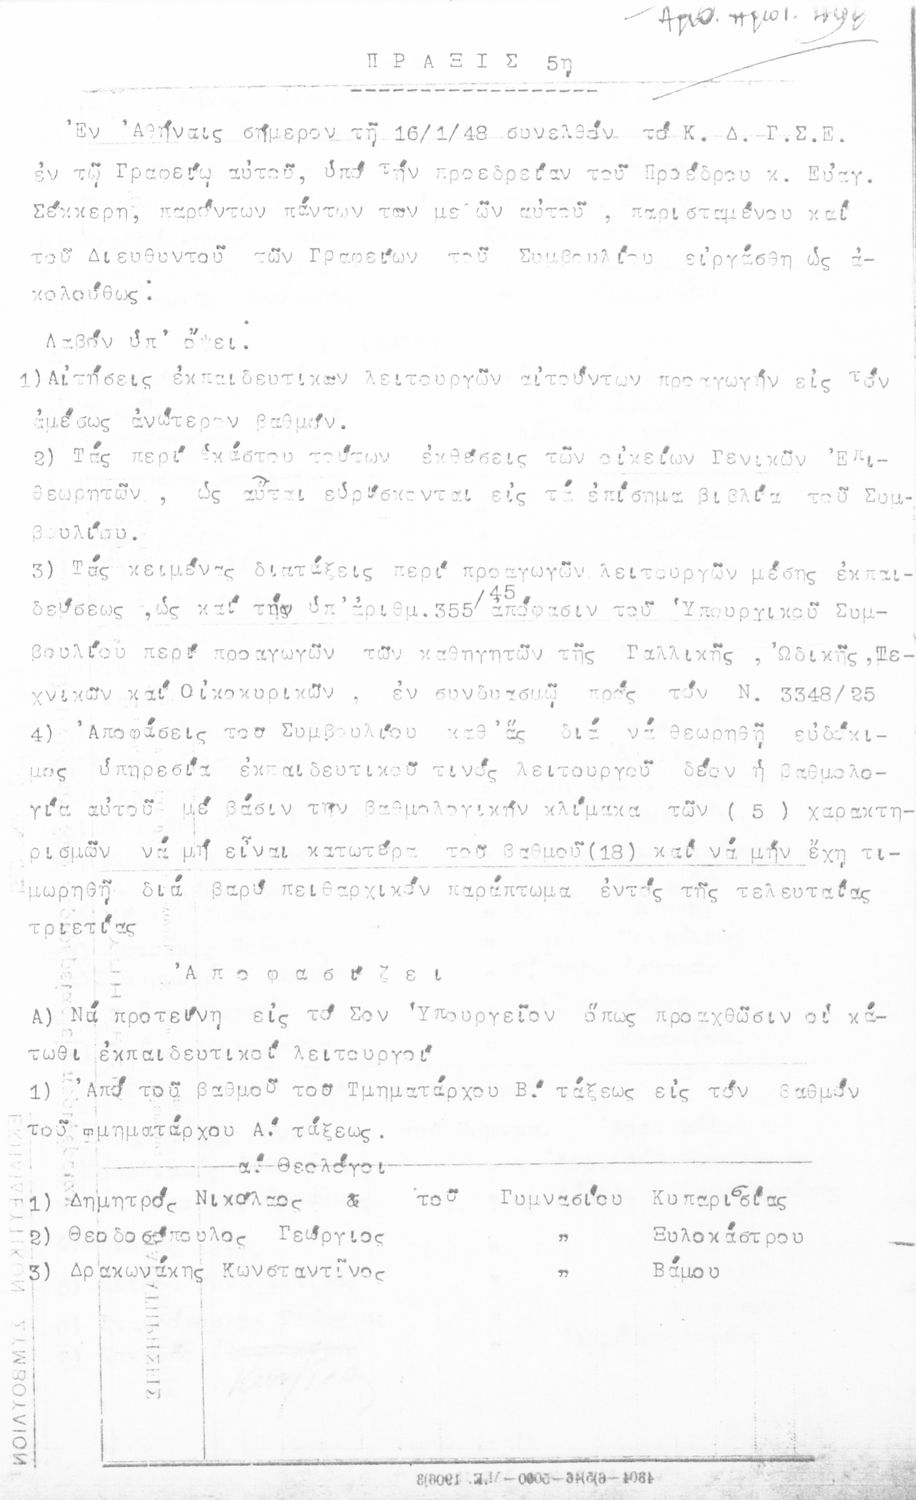 Ἀριθ. πρωτ.
Π Ρ Α Ξ Ι Σ 5η
Ἐν Ἀθήναις σήμερον τῇ 16/1/48 συνελθόν τό Κ. Δ. Γ.Σ.Ε.
ἐν τῷ Γραφείῳ αὐτοῦ, ὑπό τήν προεδρείαν τοῦ Προέδρου κ. Εὐαγ.
Σέκκερη, παρόντων πάντων των με ῶν αὐτοῦ , παρισταμένου καί
τοῦ Διευθυντοῦ τῶν Γραφείων τοῦ Συμβουλίου εἰργάσθη ὡς ἀ-
κολούθως:
Λαβόν ὑπ' ὄψει:
1)Αἰτήσεις ἐκπαιδευτικων λειτουργῶν αἰτούντων προαγωγήν εἰς τόν
ἀμέσως ἀνώτερον βαθμόν.
2) Τάς περί ἑκάστου τούτων ἐκθέσεις τῶν οἰκείων Γενικῶν Ἐπι-
θεωρητῶν , ὡς αὗται εὑρίσκονται εἰς τά ἐπίσημα βιβλία τοῦ Συμ-
βουλίου.
3) Τάς κειμένας διατάξεις περί προαγωγῶν λειτουργῶν μέσης ἐκπαι-
δεύσεως ,ὡς καί τήν ὑπ'ἀριθμ.355/45 ἀπόφασιν τοῦ Ὑπουργικοῦ Συμ-
βουλίου περί προαγωγῶν τῶν καθηγητῶν τῆς Γαλλικῆς , Ὠδικῆς ,Τε-
χνικῶν καί Οἰκοκυρικῶν , ἐν συνδυασμῷ πρός τόν Ν. 3348/25
4) Ἀποφάσεις του Συμβουλίου καθ'ἅς διά νά θεωρηθῇ εὐδόκι-
μος ὑπηρεσία ἐκπαιδευτικοῦ τινός λειτουργοῦ δέον ἡ βαθμολο-
γία αὐτοῦ μέ βάσιν την βαθμολογικήν κλίμακα τῶν ( 5 ) χαρακτη-
ρισμῶν νά μή εἶναι κατωτέρα του βαθμοῦ(18) καί νά μήν ἔχη τι-
μωρηθῇ διά βαρύ πειθαρχικόν παράπτωμα ἐντός τῆς τελευταίας
τριετίας
Ἀ π ο φ α σ ί ζ ε ι
Α) Νά προτείνη εἰς τό Σον Ὑπουργεῖον ὅπως προαχθῶσιν οἱ κά-
τωθι ἐκπαιδευτικοί λειτουργοί
1) Ἀπό τοῦ βαθμοῦ του Τμηματάρχου Β.' τάξεως εἰς τόν βαθμόν
τοῦ τμηματάρχου Α.' τάξεως.
α.' Θεολόγοι
1) Δημητρός Νικόλαος & τοῦ Γυμνασίου Κυπαρισσίας
2) Θεοδοσόπουλος Γεώργιος " Ξυλοκάστρου
3) Δρακωνάκης Κωνσταντῖνος " Βάμου